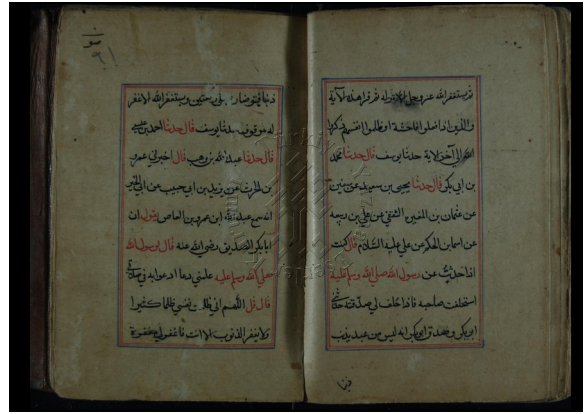 ثم يستغفر الله عز وجل الا غفر له ثم قرا هذه الآية
والذين اذا فعلوا فاحشة او ظلموا انفسهم ذكروا
الله الى آخر الآية حدثنا يوسف قال حدثنا محمد
بن ابي بكر قال حدثنا يحيى بن سعيد عن سفين
عن عثمان بن المغيره الثقفي عن علي بن ربيعه
عن اسما بن الحكم عن علي عليه السلام قال كنت
اذا حدثت عن رسول الله صلى الله وسلم عليه
استحلفت صاحبه فاذا حلف لي صدقته حدثني
ابو بكر وصدق ابو بكر انه ليس من عبد يذنب
ذنبا
ذنبا فيتوضا ركعتين ويستغفر الله الا غفر
له موقوف حدثنا يوسف قال حدثنا احمد بن عيسى
قال حدثنا عبد الله بن وهب قال اخبرني عمرو
بن الحرث عن يزيد بن ابي حبيب عن ابي الخير
انه سمع عبد الله ابن عمرو بن العاص يقول ان
ابا بكر الصديق رضي الله عنه قال لرسول الله
صلى الله وسلم عليه علمني دعا ادعو به في صلاتي
قال قل اللهم اني ظلمت نفسي ظلما كثيرا
ولا يغفر الذنوب الا انت فاغفر لي مغفرة